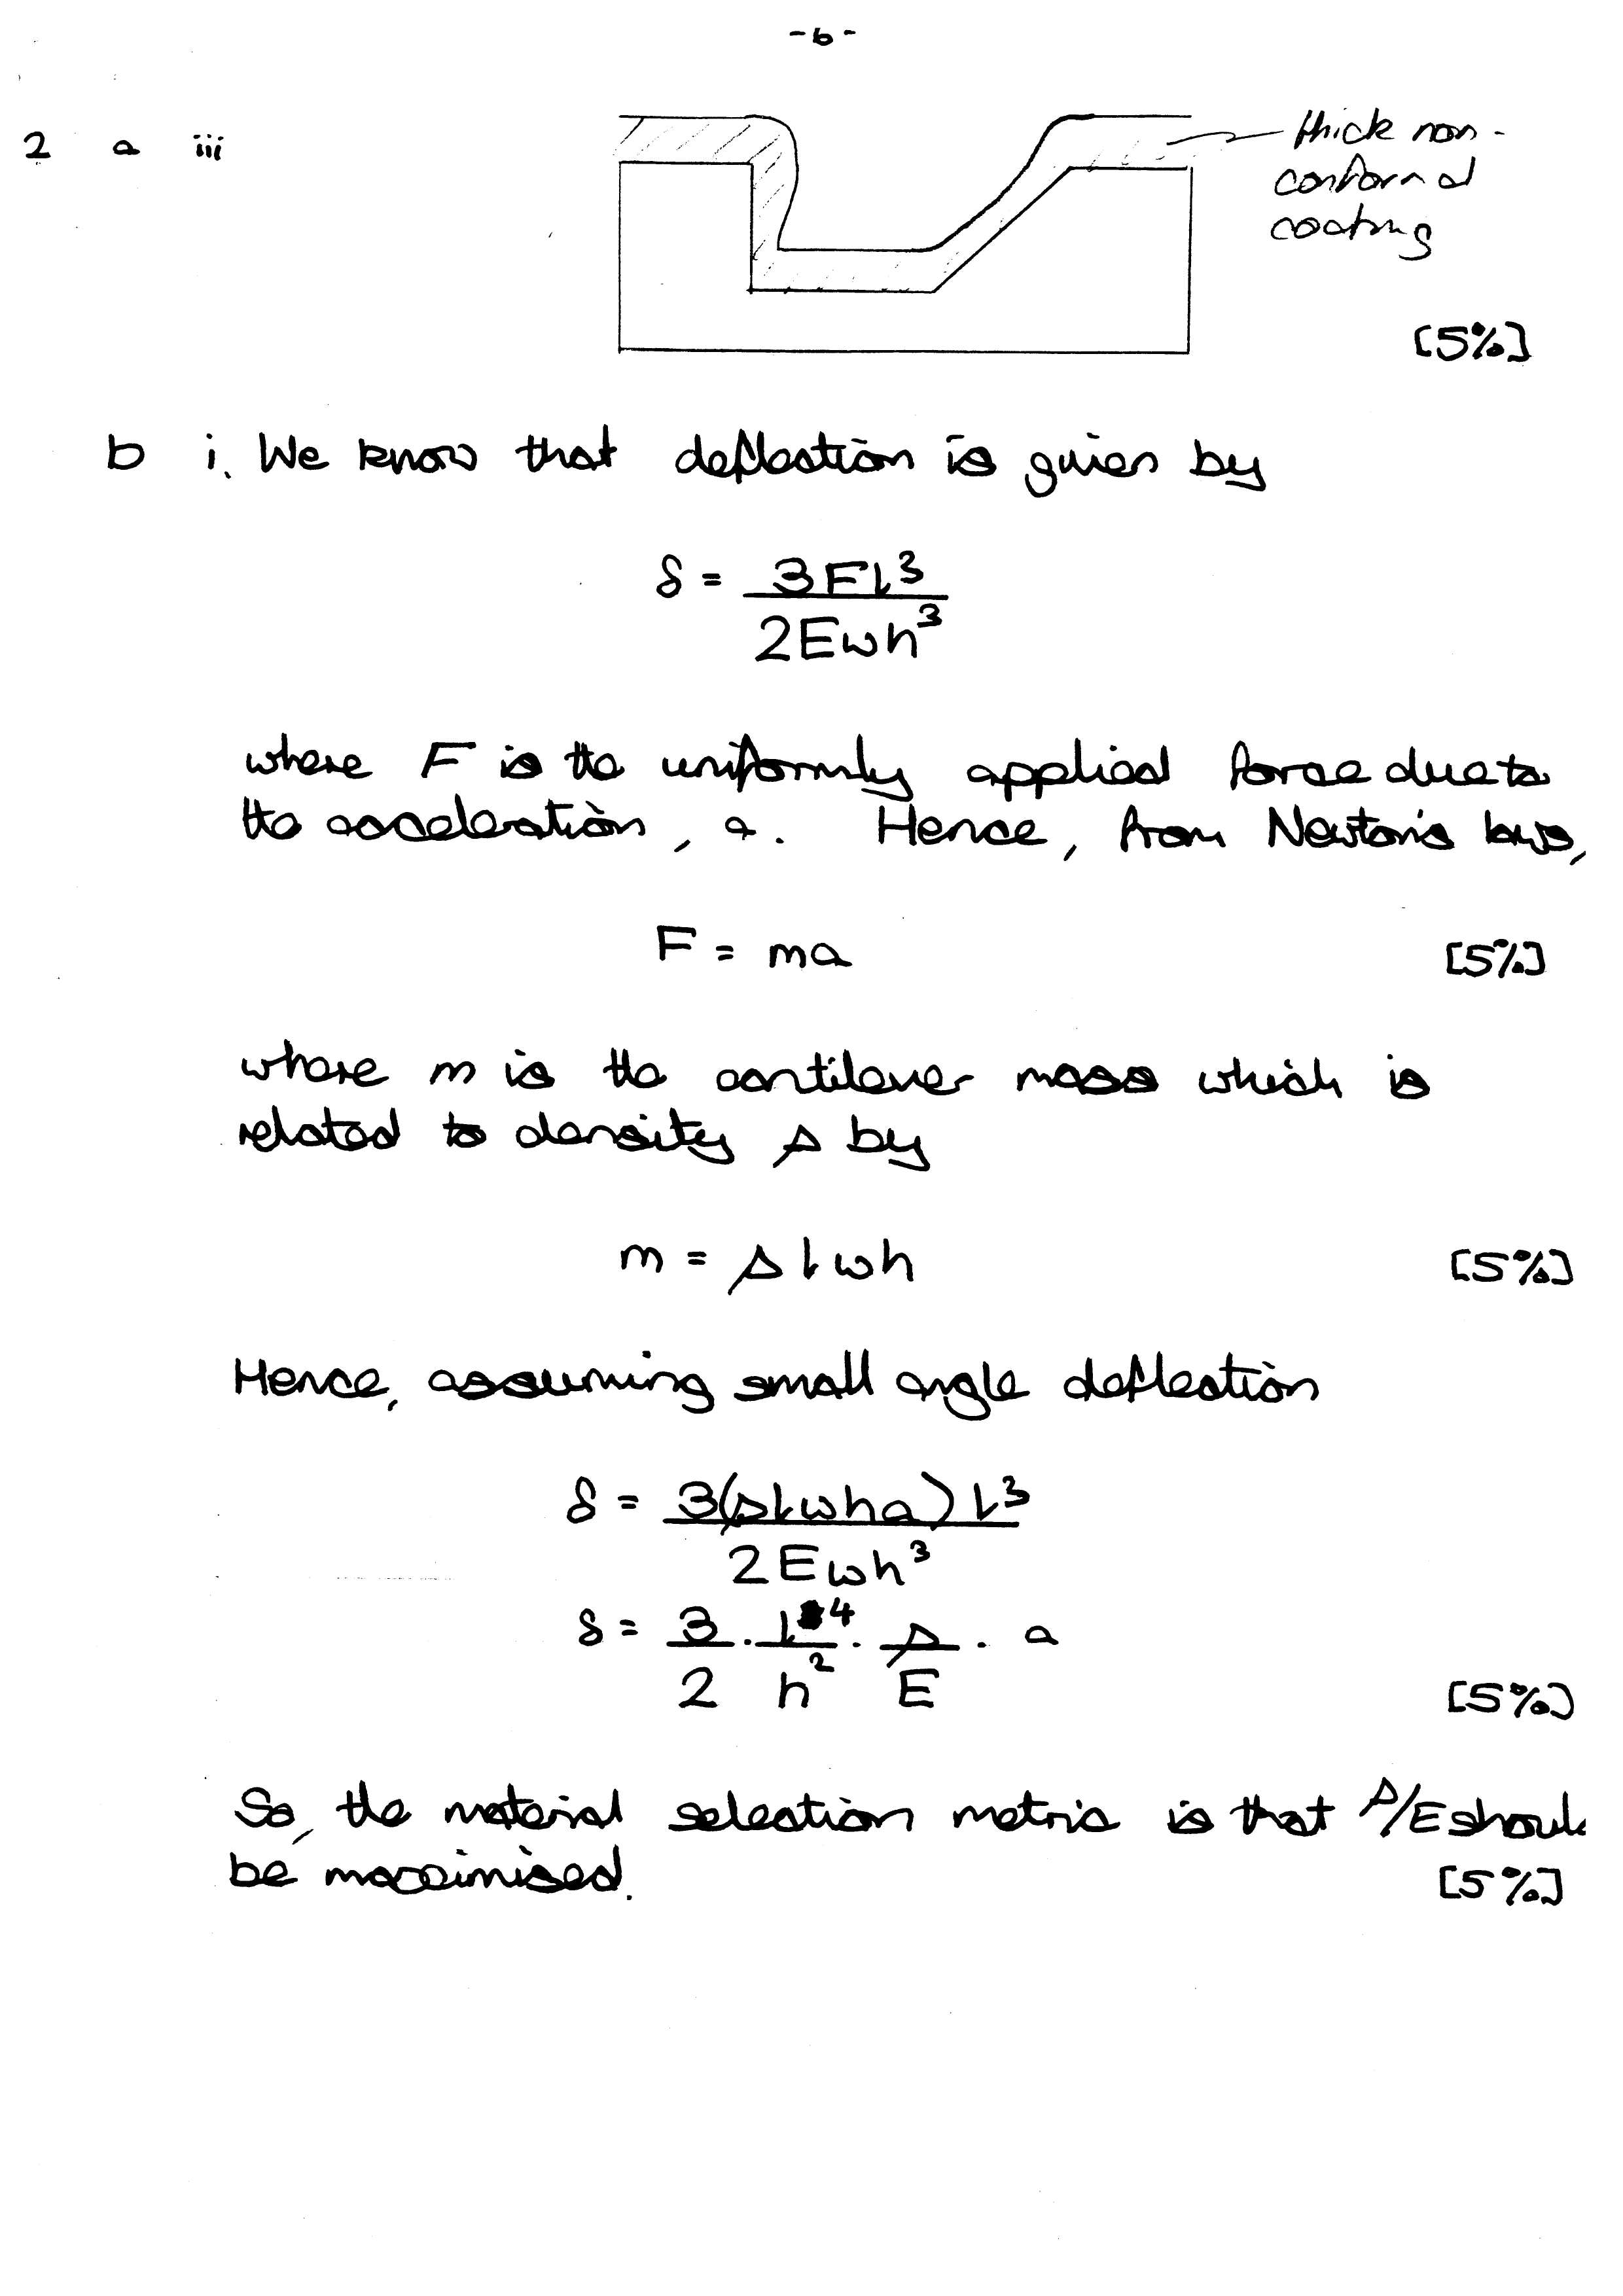 -6-
2 a iii
thick non-
conformal
coating
[5%]
b i. We know that deflection is given by
δ = 3Fl³ / 2Ewh³
where F is the uniformly applied force due to
the acceleration, a. Hence, from Newton's laws,
F = ma [5%]
where m is the cantilever mass which is
related to density ρ by
m = ρlwh [5%]
Hence, assuming small angle deflection
δ = 3(ρlwha)l³ / 2Ewh³
δ = 3/2 · l⁴/h² · ρ/E · a
[5%]
So, the material selection metric is that ρ/E shoul
be maximised. [5%]